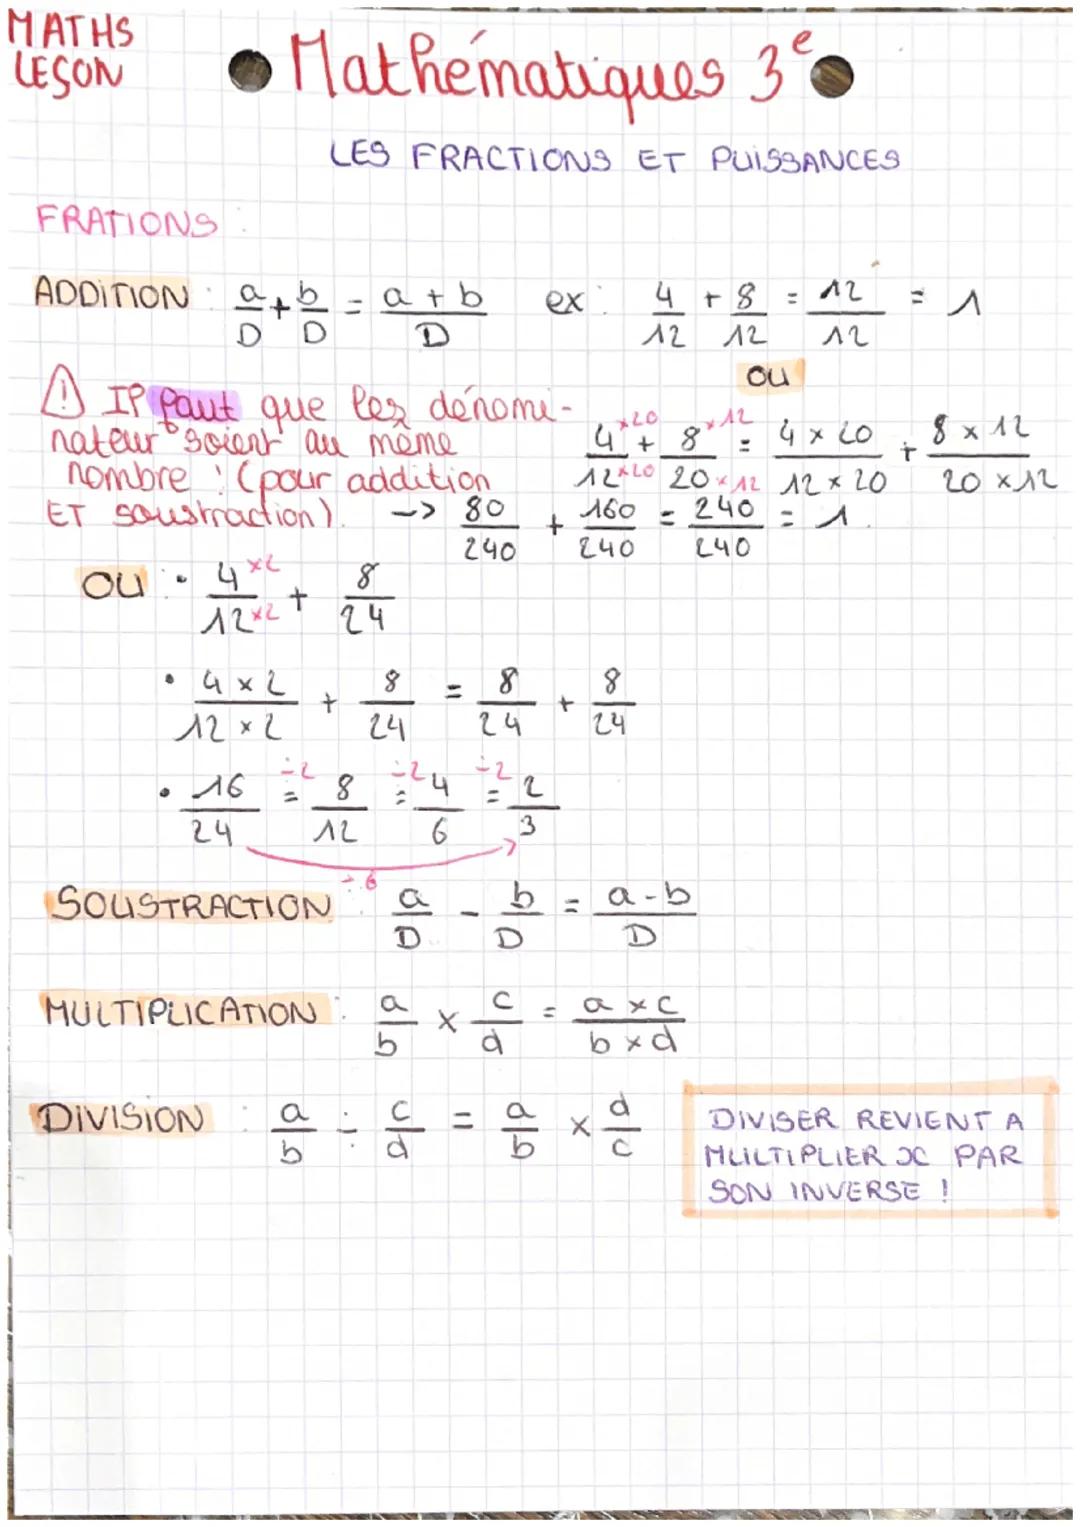 MATHS
LESON
Mathématiques 3e
LES FRACTIONS ET PUISSANCES
FRATIONS :
ADDITION : a/D + b/D = a + b/D ex : 4/12 + 8/12 = 12/12 = 1
OU
⚠ Il faut que les dénomi-
nateur soient au même
nombre : (pour addition
ET soustraction).
4×20/12×20 + 8×12/20×12 = 4 × 20/12 × 20 + 8 × 12/20 × 12
-> 80/240 + 160/240 = 240/240 = 1.
OU : • 4×2/12×2 + 8/24
• 4 × 2/12 × 2 + 8/24 = 8/24 + 8/24
• 16/24 ÷2 = 8/12 ÷2 = 4/6 ÷2 = 2/3
÷6
SOUSTRACTION : a/D - b/D = a-b/D
MULTIPLICATION : a/b × c/d = a × c/b × d
DIVISION : a/b ÷ c/d = a/b × d/c
DIVISER REVIENT A
MULTIPLIER x PAR
SON INVERSE !